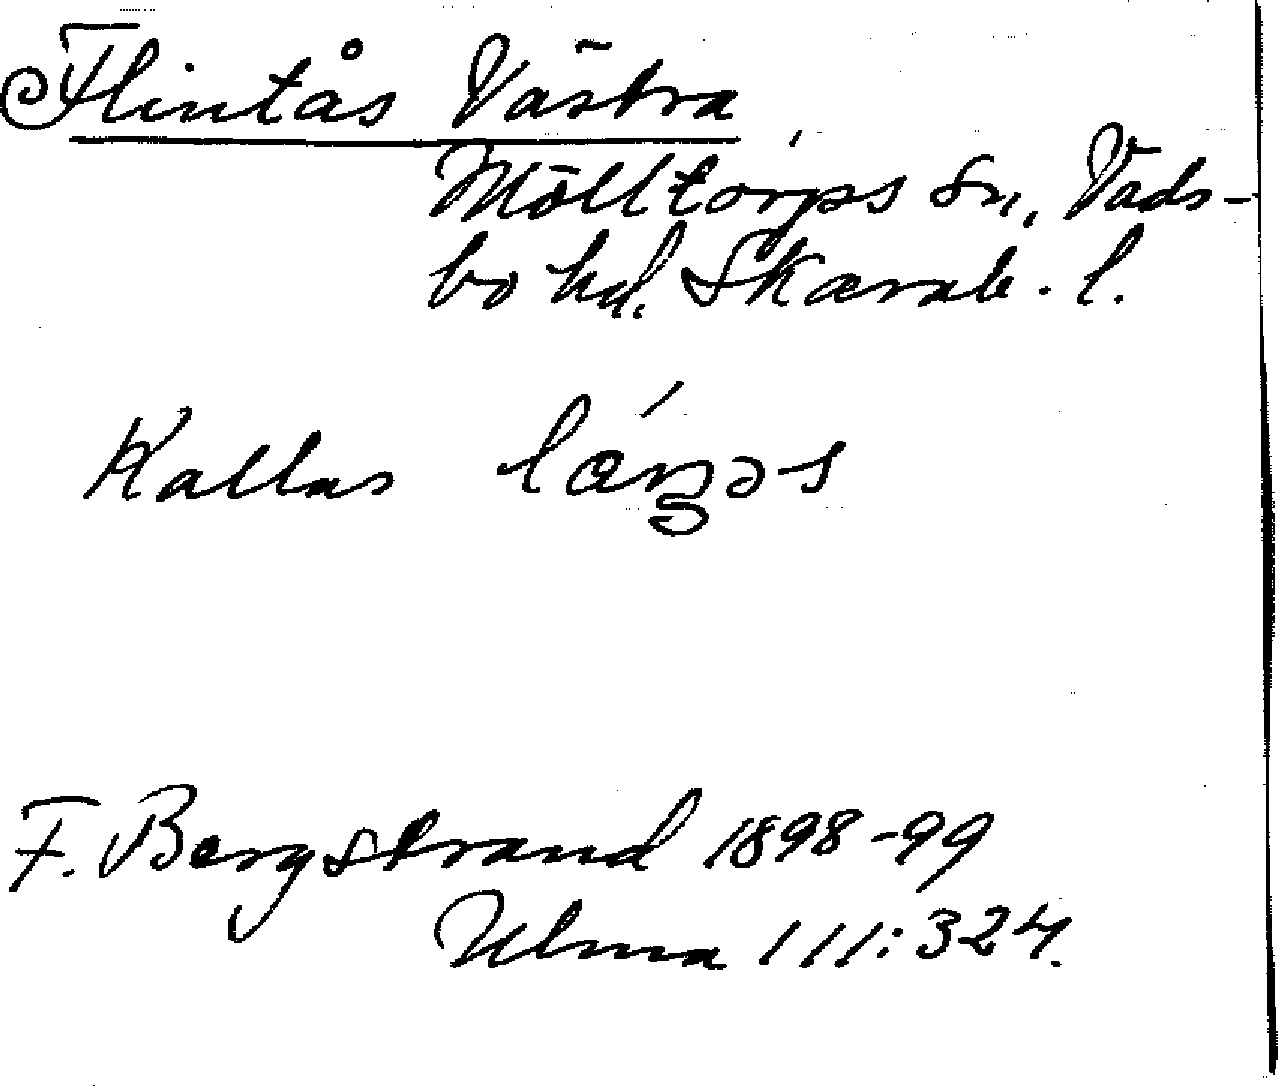 Flintås Västra
Mölltorps sn, Vads-
bo hd. Skarab. l.
Kallas
F. Bergstrand 1898-99
Ulma 111:324.